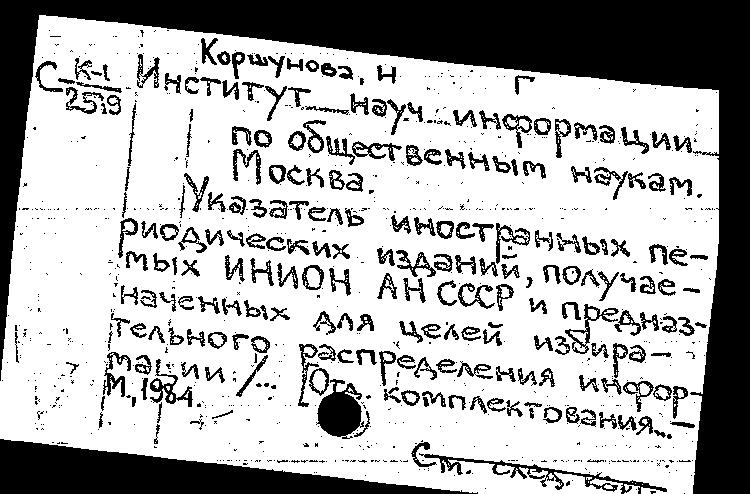 Коршунова, Н
Г
С К-1
2519
Институт науч. информации
по общественным наукам.
Москва.
Указатель иностранных пе-
риодических изданий, получае-
мых ИНИОН АН СССР и предназ-
наченных для целей избира-
тельного распределения инфор-
мации. /... [Отд. комплектования... -
М., 1984.
См. след. карт.